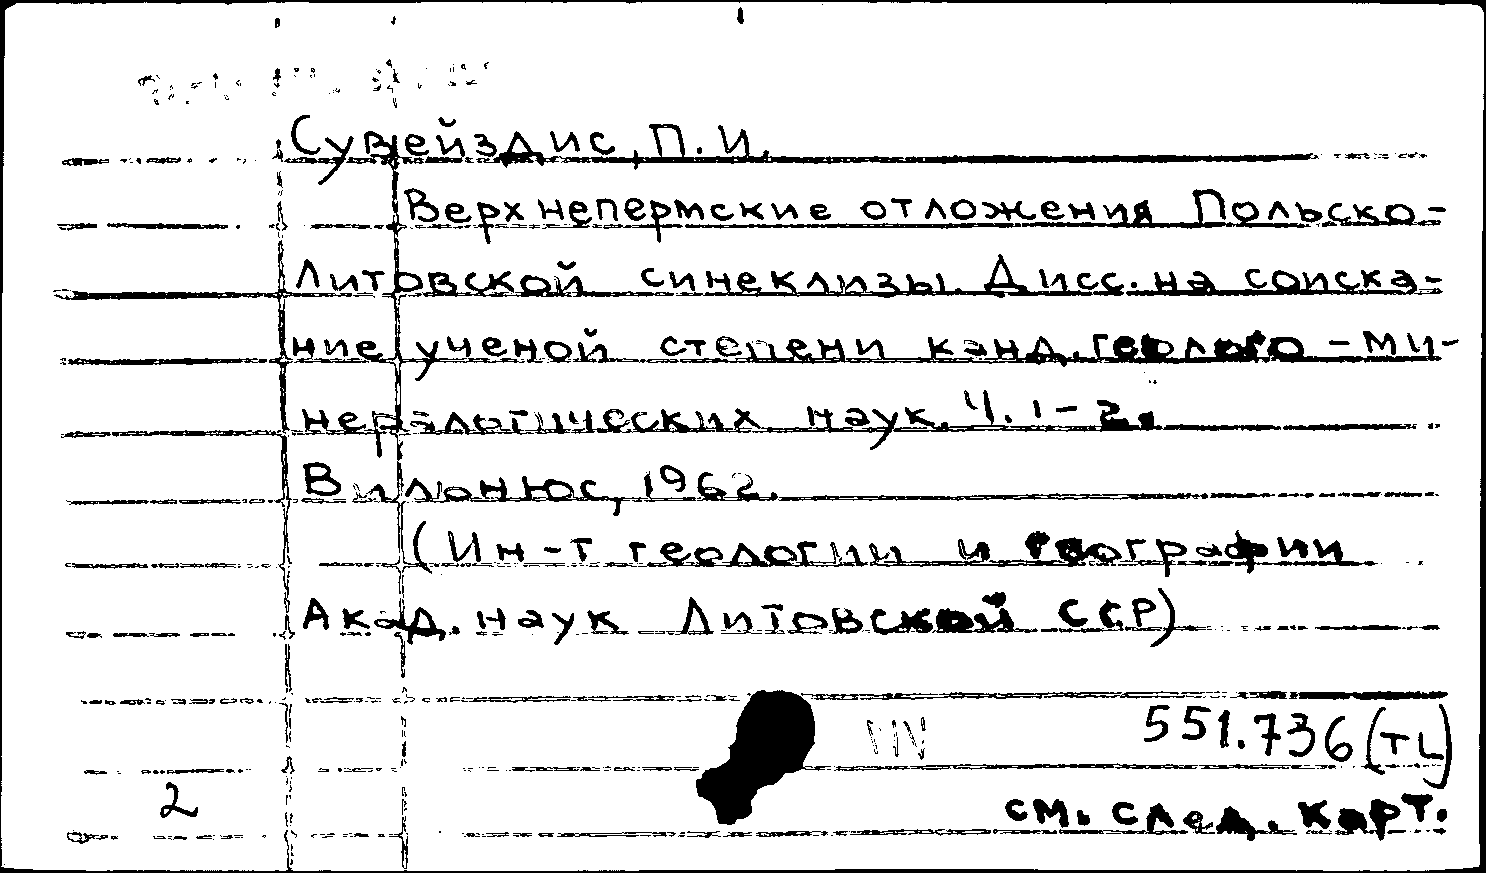 Сувейздис, П. И.
Верхнепермские отложения Польско-
Литовской синеклизы. Дисс. на соиска-
ние ученой степени канд. геолого-ми-
нералогических наук. Ч. 1-2.
Вильнюс, 1962.
(Ин-т геологии и географии
Акад. наук Литовской ССР)
551.736(TL)
2
см. след. карт.